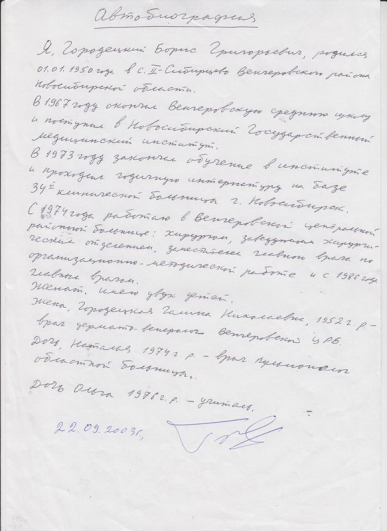 Автобиография
Я, Городецкий Борис Григорьевич, родился
01.01.1950 года в с. II-Сибирцево Венгеровского района
Новосибирской области.
В 1967 году окончил Венгеровскую среднюю школу
и поступил в Новосибирский Государственный
медицинский институт.
В 1973 году закончил обучение в институте
и проходил годичную интернатуру на базе
34й клинической больницы г. Новосибирск.
С 1974 года работаю в Венгеровской центральной
районной больнице: хирургом, заведующим хирурги-
ческим отделением, заместителем главного врача по
организационно-методической работе и с 1986 года
главным врачом.
Женат, имею двух детей.
Жена, Городецкая Галина Николаевна, 1952 г р -
врач дермато-венеролог Венгеровской ЦРБ.
Дочь, Наталья, 1974 г р - врач пульмонолог
областной больницы.
Дочь Ольга 1978 г.р. - учитель.
22.09.2003г.